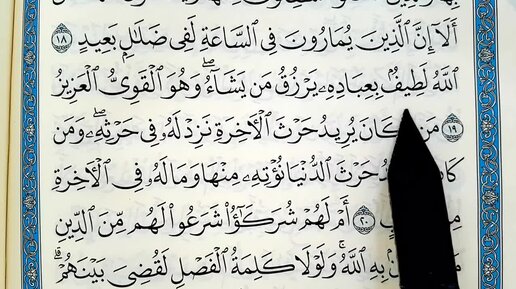 أَلَآ إِنَّ ٱلَّذِينَ يُمَارُونَ فِي ٱلسَّاعَةِ لَفِي ضَلَٰلِۭ بَعِيدٍ ١٨
ٱللَّهُ لَطِيفُۢ بِعِبَادِهِۦ يَرۡزُقُ مَن يَشَآءُۖ وَهُوَ ٱلۡقَوِيُّ ٱلۡعَزِيزُ
١٩ مَن كَانَ يُرِيدُ حَرۡثَ ٱلۡأٓخِرَةِ نَزِدۡ لَهُۥ فِي حَرۡثِهِۦۖ وَمَن
حَرۡثَ ٱلدُّنۡيَا نُؤۡتِهِۦ مِنۡهَا وَمَا لَهُۥ فِي ٱلۡأٓخِرَةِ
٢٠ أَمۡ لَهُمۡ شُرَكَٰٓؤُاْ شَرَعُواْ لَهُم مِّنَ ٱلدِّينِ
بِهِ ٱللَّهُۚ وَلَوۡلَا كَلِمَةُ ٱلۡفَصۡلِ لَقُضِيَ بَيۡنَهُمۡۗ